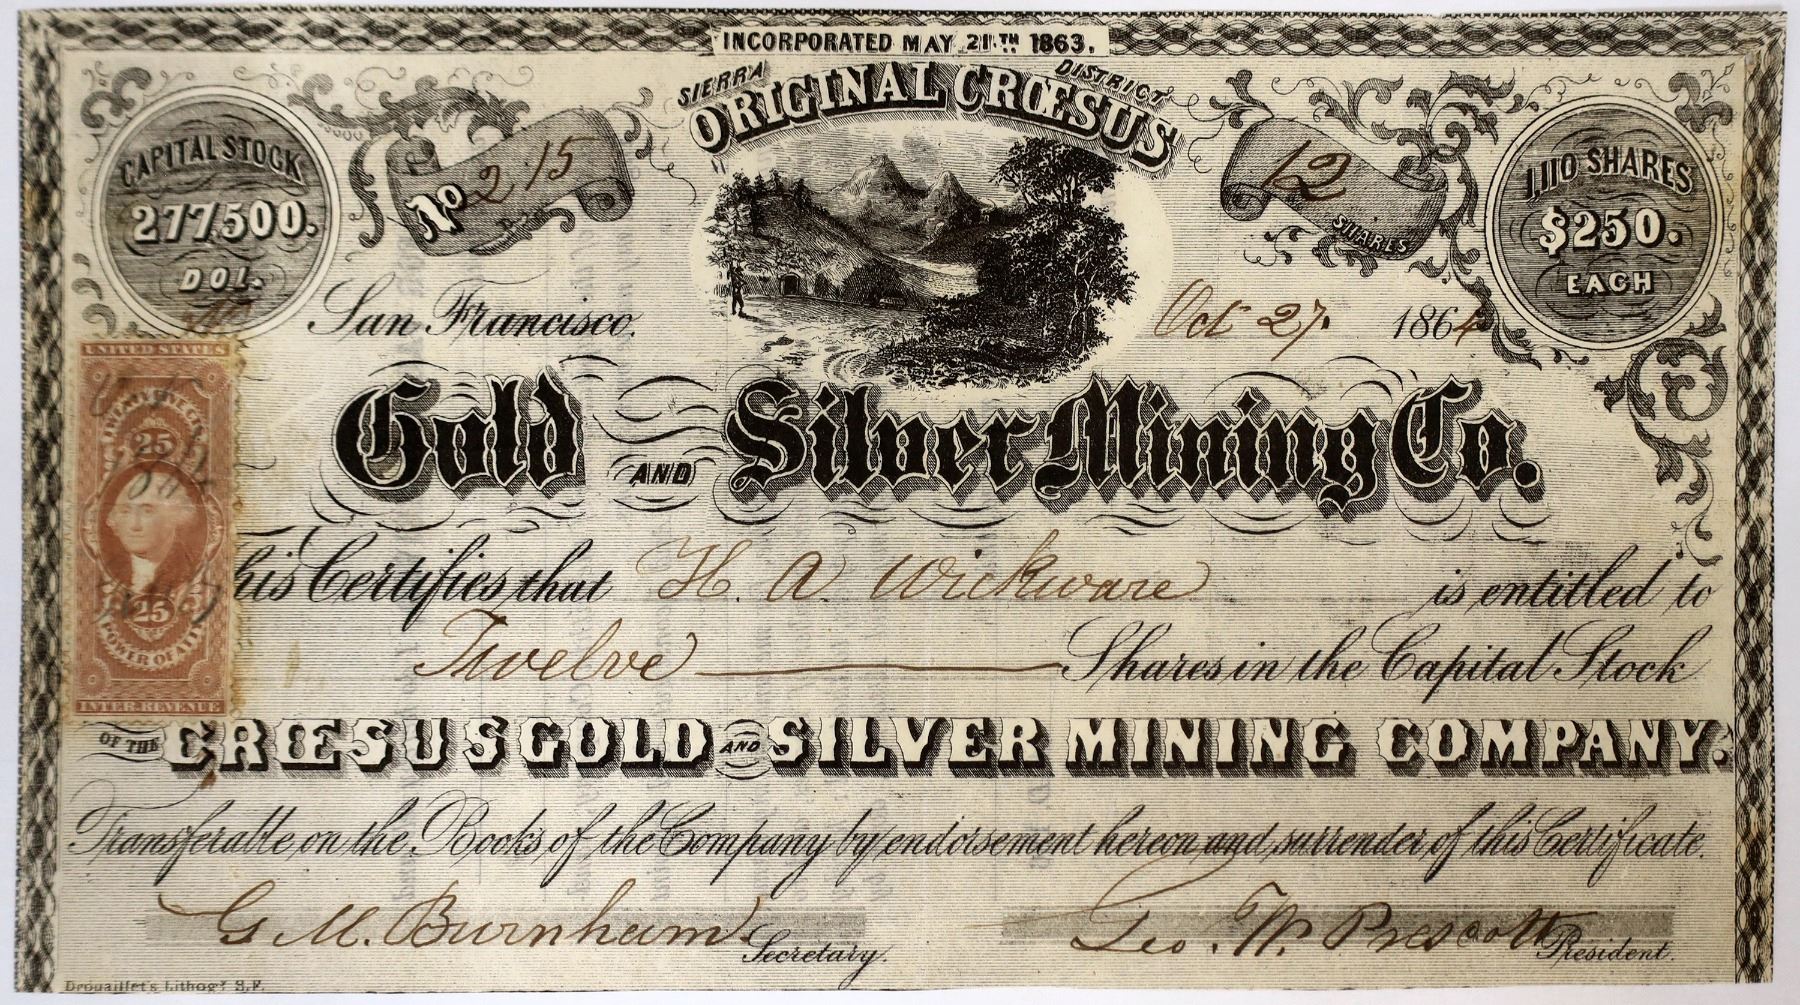 INCORPORATED MAY 21.TH 1863.
SIERRA DISTRICT
ORIGINAL CRŒSUS
CAPITAL STOCK
277500.
DOL.
No 215
12
SHARES
1,110 SHARES
$250.
EACH
San Francisco. Oct 27. 1864
Gold AND Silver Mining Co.
UNITED STATES
25
25
POWER OF ATT
INTER. REVENUE
his Certifies that H. A. Wickware is entitled to
Twelve Shares in the Capital Stock
OF THE CRŒSUS GOLD AND SILVER MINING COMPANY.
Transferable on the Books of the Company by endorsement hereon and surrender of this Certificate.
G. M. Burnham Secretary. Geo. W. Prescott President.
Drouaillet's Lithogy S.F.